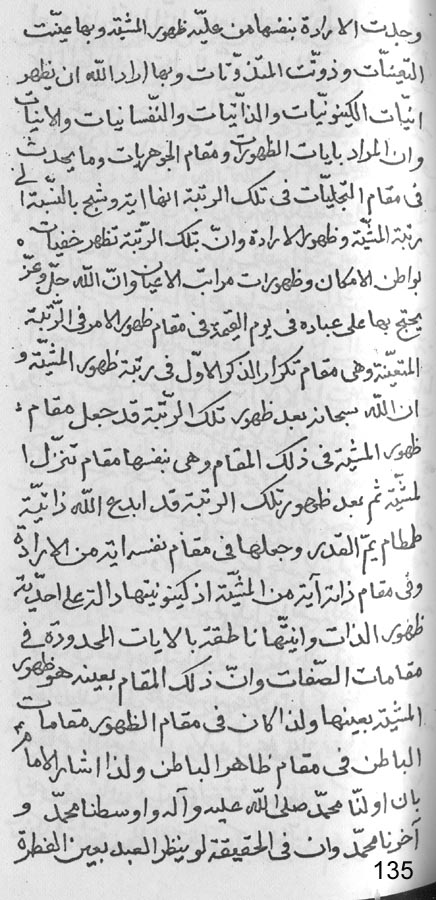 وجدت الارادة بنفسها من علية ظهور المشية وبها عينت
التعينات وذوتت المتذوتات وبها اراد الله ان يظهر
انيات الكينونيات والذاتيات والنفسانيات والانيات
وان المراد بايات الظهورات ومقام الجوهريات وما يحدث
في مقام التجليات في تلك الرتبة انها اية وشبح بالنسبة الى
رتبة المشية وظهور الارادة وان بتلك الرتبة تظهر خفيات
بواطن الامكان وظهورات مراتب الاعيان وان الله جل وعز
يحتج بها على عباده في يوم القيمة في مقام ظهور الامر في الرتبة
المتعينة وهي مقام تكرار الذكر الاول في رتبة ظهور المشية و
ان الله سبحانه بعد ظهور تلك الرتبة قد جعل مقام
ظهور المشية في ذلك المقام وهي نفسها مقام تنزل ا
لمشية ثم بعد ظهور تلك الرتبة قد ابدع الله ذاتية
طمطام يم القدر وجعلها في مقام نفسه اية من الارادة
وفي مقام ذاته آية من المشية اذ كينونيتها دالة على احدية
ظهور الذات وانيتها ناطقة بالايات المحدودة في
مقامات الصفات وان ذلك المقام بعينه هو ظهور
المشية بعينها ولذا كان في مقام الظهور مقامات
الباطن في مقام ظاهر الباطن ولذا اشار الامام
بان اولنا محمد صلى الله عليه وآله واوسطنا محمد و
آخرنا محمد وان في الحقيقة لو ينظر العبد بعين الفطرة
135